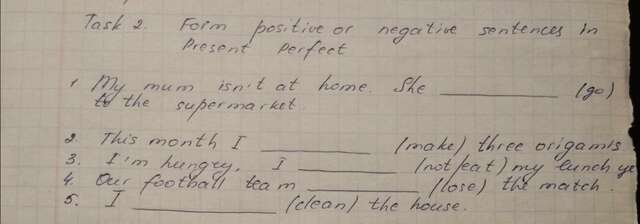 Task 2. Form positive or negative sentences in
Present Perfect
1 My mum isn't at home. She __________ (go)
to the supermarket.
2. This month I __________ (make) three origamis
3. I'm hungry, I __________ (not/eat) my lunch ye
4. Our football team __________ (lose) the match.
5. I __________ (clean) the house.